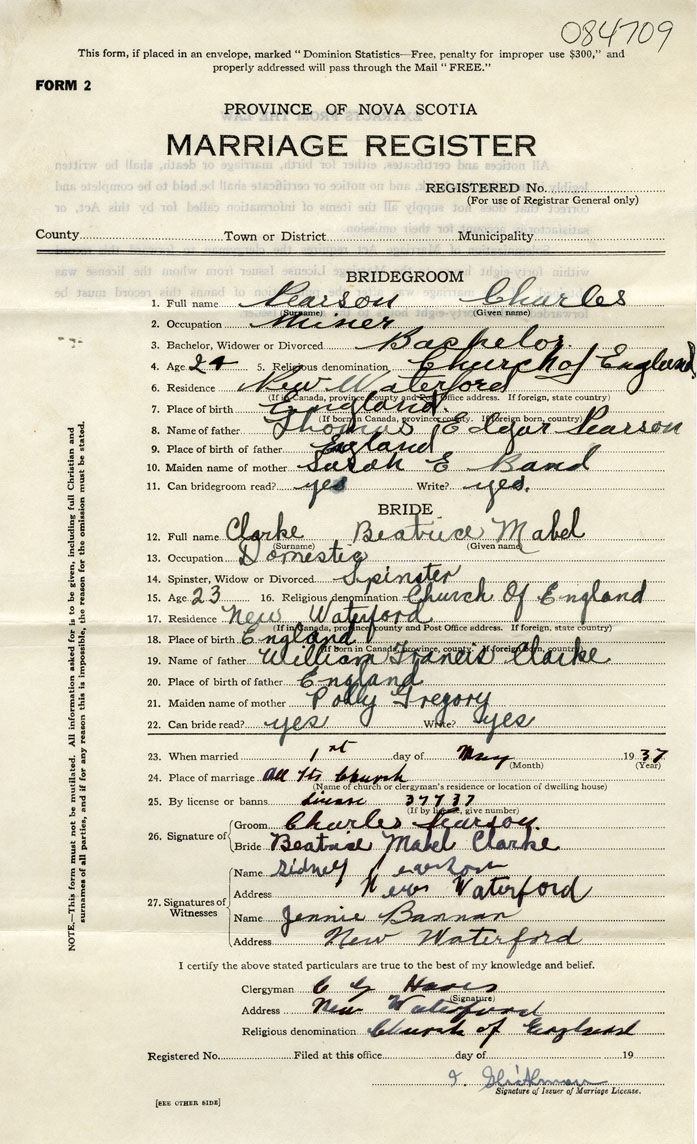 084709
This form, if placed in an envelope, marked "Dominion Statistics—Free, penalty for improper use $300," and
properly addressed will pass through the Mail "FREE."
FORM 2
PROVINCE OF NOVA SCOTIA
MARRIAGE REGISTER
REGISTERED No.
(For use of Registrar General only)
County Town or District Municipality
BRIDEGROOM
1. Full name Pearson Charles
(Surname) (Given name)
2. Occupation Miner
3. Bachelor, Widower or Divorced Bachelor.
4. Age 24 5. Religious denomination Church of England
6. Residence New Waterford
(If in Canada, province county and Post Office address. If foreign, state country)
7. Place of birth England.
(If born in Canada, province county. If foreign born, country)
8. Name of father Thomas Edgar Pearson
9. Place of birth of father England
10. Maiden name of mother Sarah E Band
11. Can bridegroom read? yes Write? yes.
BRIDE
12. Full name Clarke Beatrice Mabel
(Surname) (Given name)
13. Occupation Domestic
14. Spinster, Widow or Divorced Spinster
15. Age 23 16. Religious denomination Church Of England
17. Residence New Waterford
(If in Canada, province county and Post Office address. If foreign, state country)
18. Place of birth England
(If born in Canada, province county. If foreign born, country)
19. Name of father William Francis Clarke
20. Place of birth of father England
21. Maiden name of mother Polly Gregory
22. Can bride read? yes Write? yes
23. When married 1st day of May 1937
(Month) (Year)
24. Place of marriage All Sts Church
(Name of church or clergyman's residence or location of dwelling house)
25. By license or banns license 37737
(If by license, give number)
26. Signature of Groom Charles Pearson.
Bride Beatrice Mabel Clarke
27. Signatures of Witnesses
Name Sidney
Address New Waterford
Name Jennie Bannan
Address New Waterford
I certify the above stated particulars are true to the best of my knowledge and belief.
Clergyman C G
(Signature)
Address New Waterford
Religious denomination Church of England
Registered No. Filed at this office day of 19
Signature of Issuer of Marriage License.
[SEE OTHER SIDE]
NOTE.—This form must not be mutilated. All information asked for is to be given, including full Christian and
surnames of all parties, and if for any reason this is impossible, the reason for the omission must be stated.